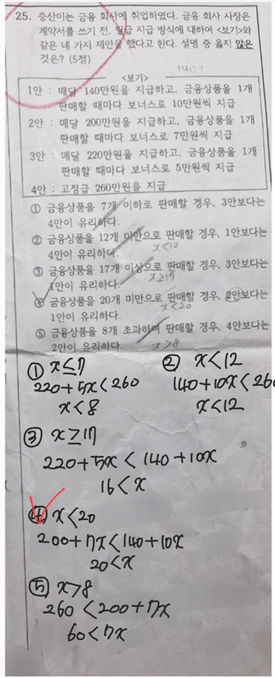 25. 증산이는 금융 회사에 취업하였다. 금융 회사 사장은
계약서를 쓰기 전, 월급 지급 방식에 대하여 <보기>와
같은 네 가지 제안을 했다고 한다. 설명 중 옳지 않은
것은? (5점)
<보기>
1안 : 매달 140만원을 지급하고, 금융상품을 1개
판매할 때마다 보너스로 10만원씩 지급
2안 : 매달 200만원을 지급하고, 금융상품을 1개
판매할 때마다 보너스로 7만원씩 지급
3안 : 매달 220만원을 지급하고, 금융상품을 1개
판매할 때마다 보너스로 5만원씩 지급
4안 : 고정급 260만원을 지급
① 금융상품을 7개 이하로 판매할 경우, 3안보다는
4안이 유리하다.
② 금융상품을 12개 미만으로 판매할 경우, 1안보다는
4안이 유리하다. x<12
③ 금융상품을 17개 이상으로 판매할 경우, 3안보다는
1안이 유리하다. x≥17
④ 금융상품을 20개 미만으로 판매할 경우, 2안보다는
1안이 유리하다. x<20
⑤ 금융상품을 8개 초과하여 판매할 경우, 4안보다는
2안이 유리하다. x>8
① x≤7
220+5x<260
x<8
② x<12
140+10x<260
x<12
③ x≥17
220+5x<140+10x
16<x
④ x<20
200+7x<140+10x
20<x
⑤ x>8
260<200+7x
60<7x